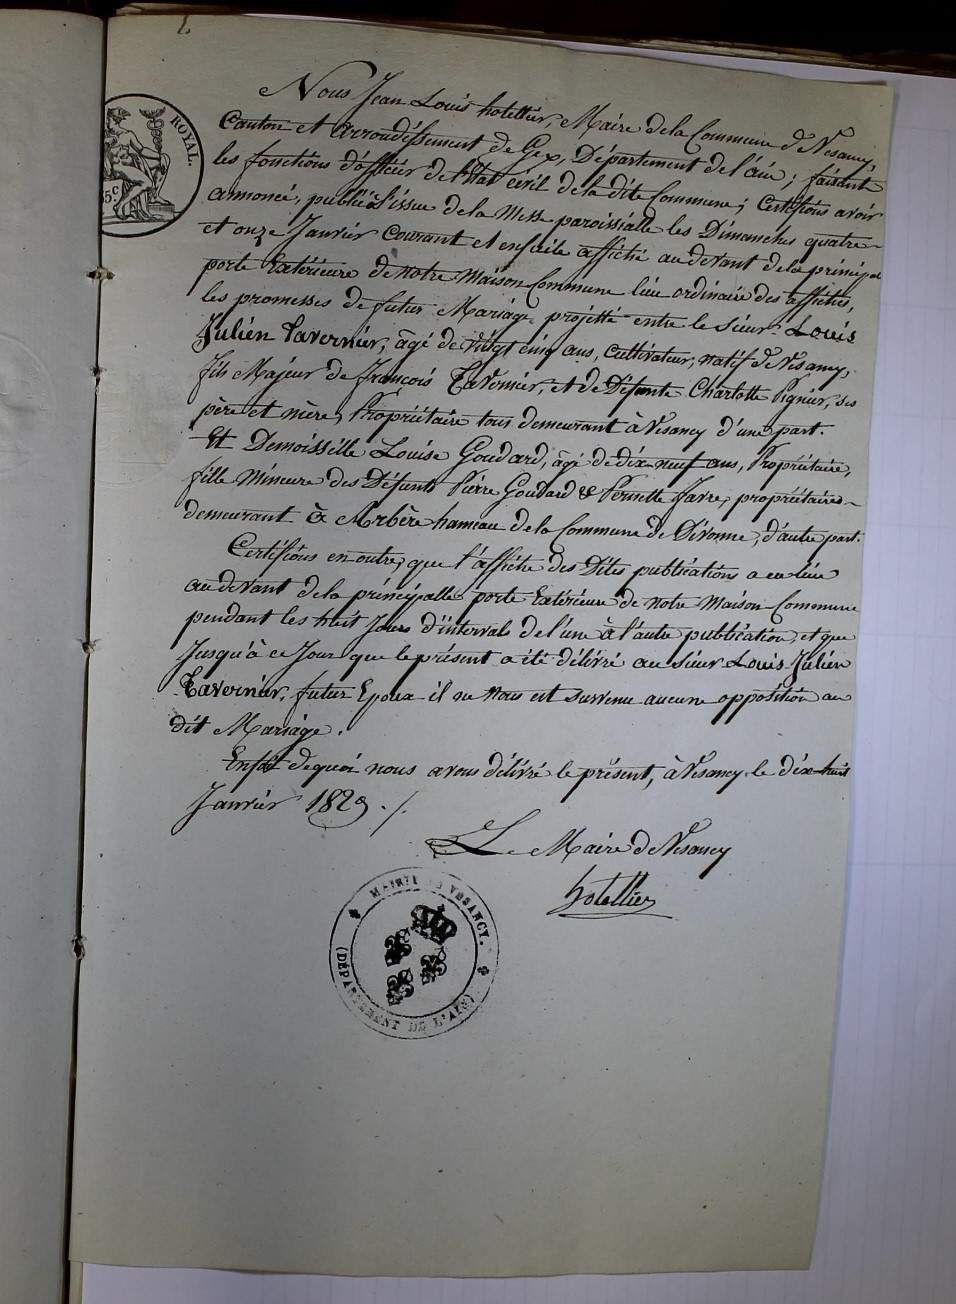 ROYAL.
5.c
Nous Jean Louis hotellier, Maire de la Commune de Vesancy,
Canton et arrondissement de Gex, Département de l'ain; faisant
les fonctions d'officier de l'Etat civil de la dite Commune; Certifions avoir
annoncé, publié à l'issue de la Messe paroissialle les Dimanches quatre
et onze Janvier Courant et ensuite affiché au devant de la principal
porte Extérieure de notre Maison Commune lieu ordinaire des affiches,
les promesses de futur Mariage projetté entre le sieur Louis
Julien Tavernier, âgé de vingt cinq ans, cultivateur, natif de Vesancy,
fils Majeur de françois Tavernier, et de Défunte Charlotte Pignier, ses
père et mère, Propriétaire tous demeurant à Vesancy d'une part.
Et Demoisselle Louise Goudard, âgé de dix neuf ans, Propriétaire,
fille Mineure des Défunts Pierre Goudard & Pernette favre, propriétaires
demeurant à Arbère hameau de la Commune de Divonne, d'autre part.
Certifions en outre, que l'affiche des Dites publications a eu lieu
au devant de la principalle porte Extérieure de notre Maison Commune
pendant les huit Jours d'interval de l'une à l'autre publication, et que
Jusqu'à ce Jour que le présent a été délivré au sieur Louis Julien
Tavernier, futur Epoux il ne nous est survenu aucune opposition au
dit Mariage.
En foi de quoi nous avons délivré le présent, à Vesancy le dix huit
Janvier 1829 ./.
Le Maire de Vesancy
hotellier
MAIRIE DE VESANCY.
(DÉPARTEMENT DE L'AIN)